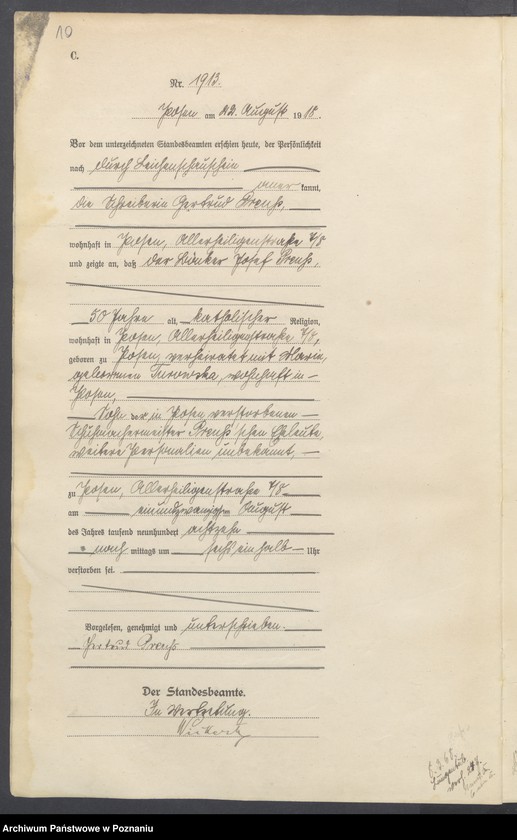 10
C.
Nr. 1913.
Posen am 22. August 1918.
Vor dem unterzeichneten Standesbeamten erschien heute, der Persönlichkeit
nach durch Leichenschauschein
aner kannt,
die Schreiberin Gertrud Preuß,
wohnhaft in Posen, Allerheiligenstraße 7/8
und zeigte an, daß der Bäcker Josef Preuß,
50 Jahre alt, katholischer Religion,
wohnhaft in Posen, Allerheiligenstraße 7/8,
geboren zu Posen, verheiratet mit Maria,
geborenen Turowska, wohnhaft in
Posen,
Sohn der in Posen verstorbenen
Schuhmachermeister Preuß'schen Eheleute,
weitere Personalien unbekannt,
zu Posen, Allerheiligenstraße 7/8
am einundzwanzigsten August
des Jahres tausend neunhundert achtzehn
nach mittags um sechs ein halb Uhr
verstorben sei.
Vorgelesen, genehmigt und unterschrieben.
Gertrud Preuß
Der Standesbeamte.
In Vertretung.
Archiwum Państwowe w Poznaniu